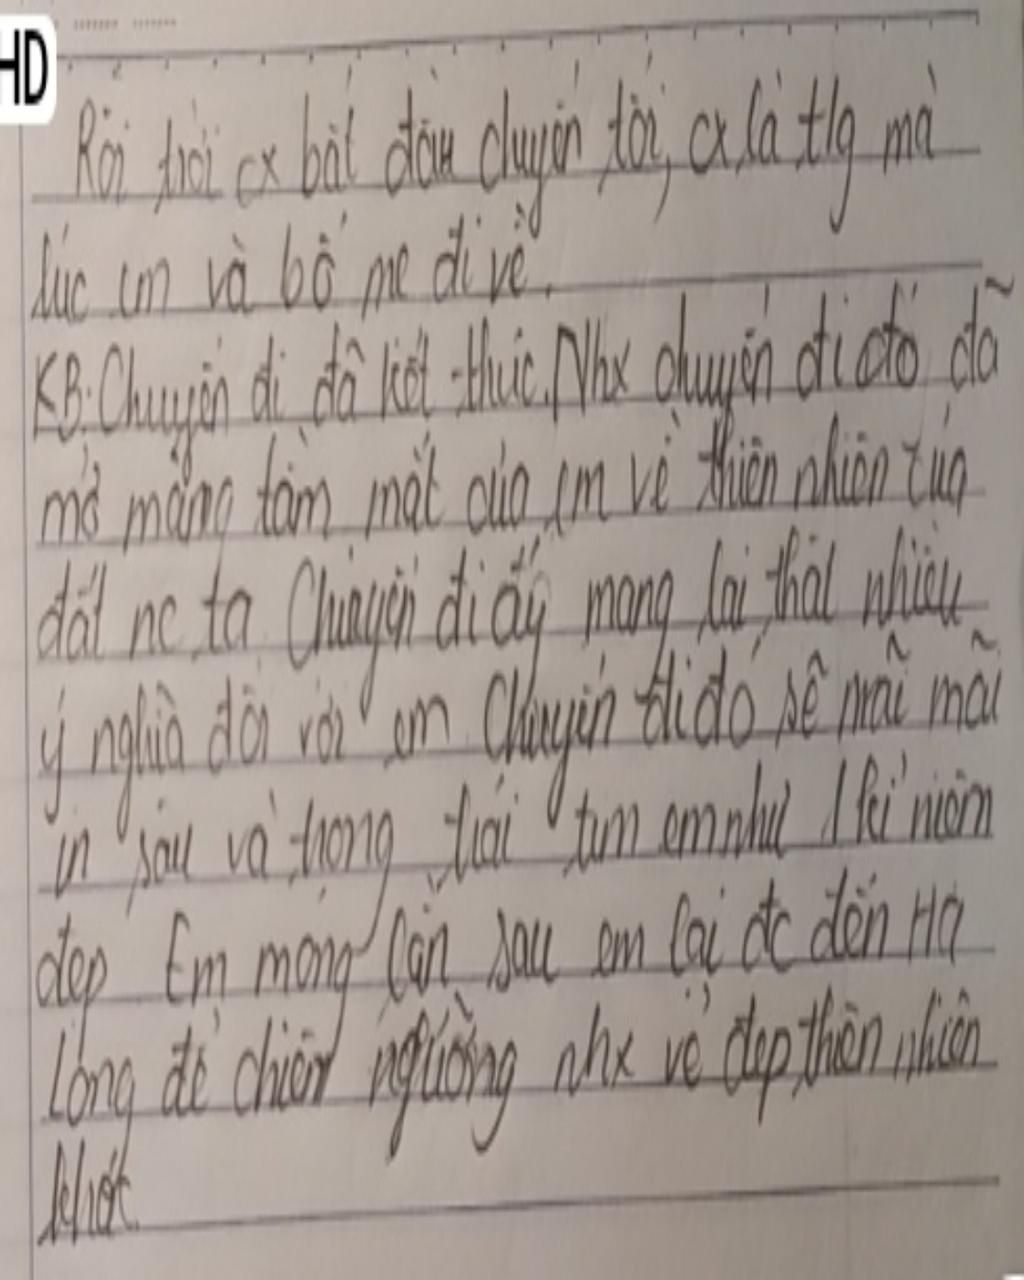 HD
Rồi trời cx bắt đầu chuyển tối, cx là tlg mà
lúc em và bố mẹ đi về.
KB: Chuyến đi đã kết thúc. Nhx chuyến đi đó đã
mở mang tầm mắt của em về thiên nhiên của
đất nc ta Chuyến đi ấy mang lại thật nhiều
ý nghĩa đối với em Chuyến đi đó sẽ mãi mãi
in sâu và trong trái tim em như 1 kỉ niệm
đẹp Em mong lần sau em lại đc đến Hạ
Long để chiêm ngưỡng nhx vẻ đẹp thiên nhiên
khác.